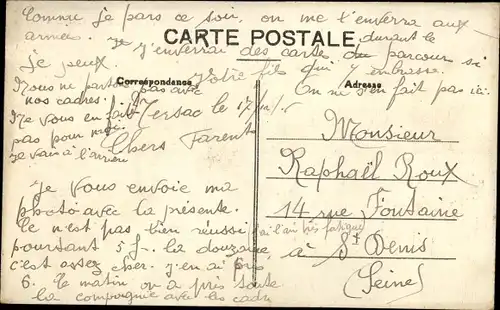 Comme je pars ce soir, on me l'enverra aux
armées. Je j'enverrai des cartes du parcour si
durant le
je peux
CARTE POSTALE
Votre fils qui embrasse.
On ne s'en fait pas ici.
Nous ne partons pas avec
nos cadres.
Ne vous en fait
pas pour moi
je vais à l'arrière
Correspondance
Adresse
Jersac le 17
Chers Parents
Je vous envoie ma
photo avec la présente.
Ce n'est pas bien réussi
j'ai l'air très fatigué
poursant 5 f. la douzaine
c'est assez cher. j'en ai pris
6. Ce matin on a pris toute
la compagnie avec les cadre
Monsieur
Raphaël Roux
14 rue Fontaine
à St Denis
(Seine)